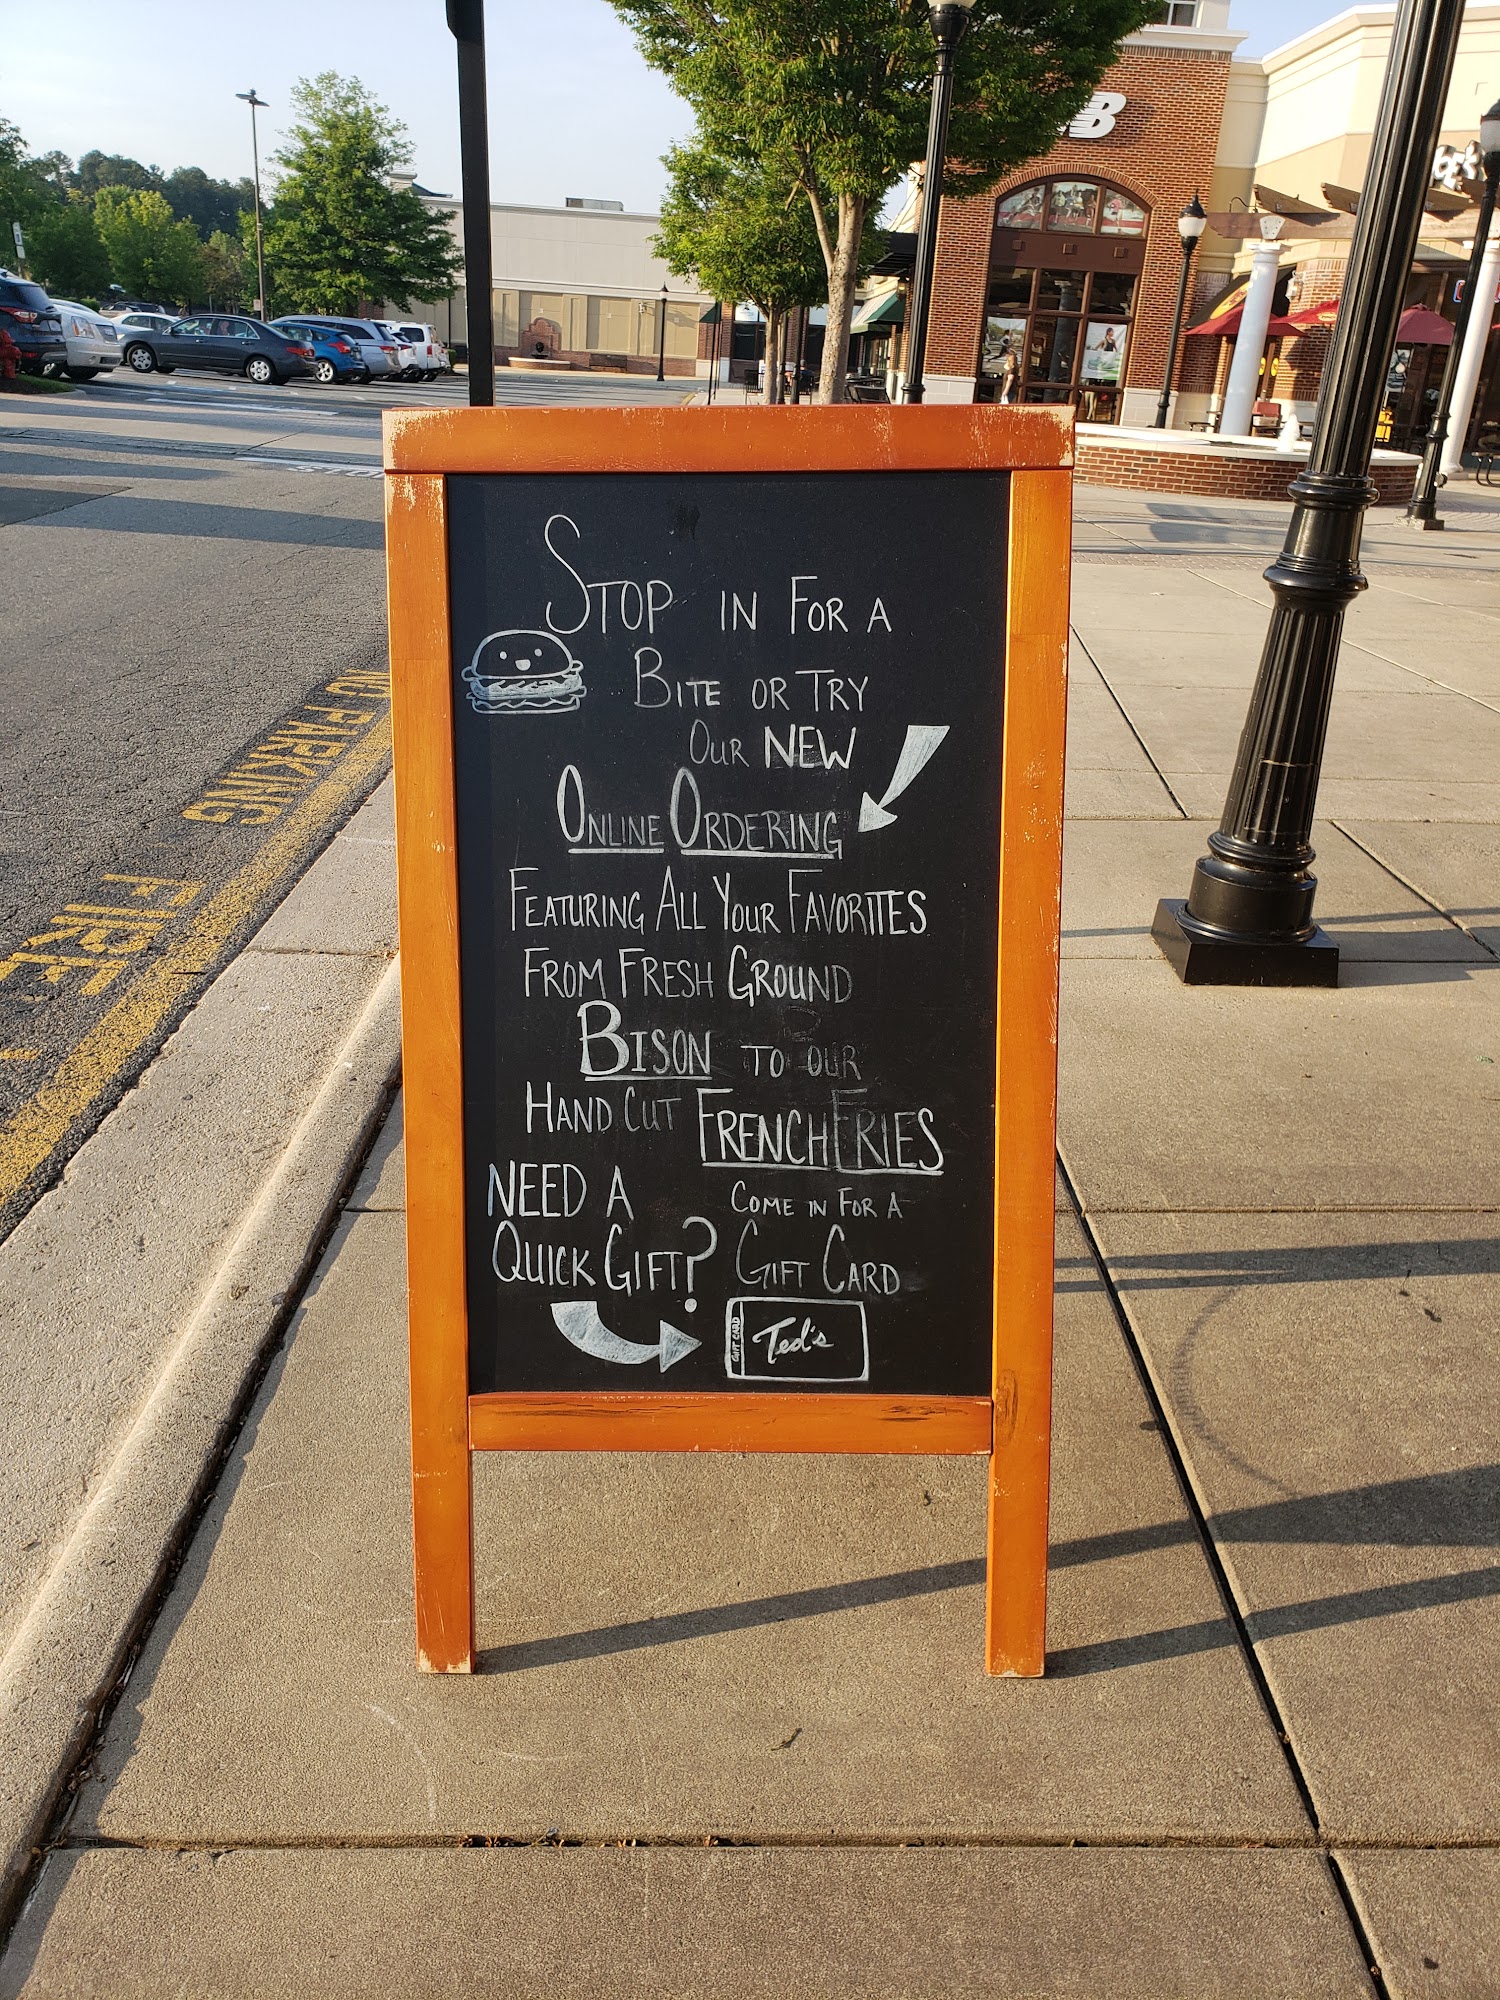 STOP IN FOR A
BITE OR TRY
OUR NEW
ONLINE ORDERING
FEATURING ALL YOUR FAVORITES
FROM FRESH GROUND
BISON TO OUR
HAND CUT FRENCH FRIES
NEED A
QUICK GIFT?
COME IN FOR A
GIFT CARD
GIFT CARD
Ted's
NO PARKING
FIRE